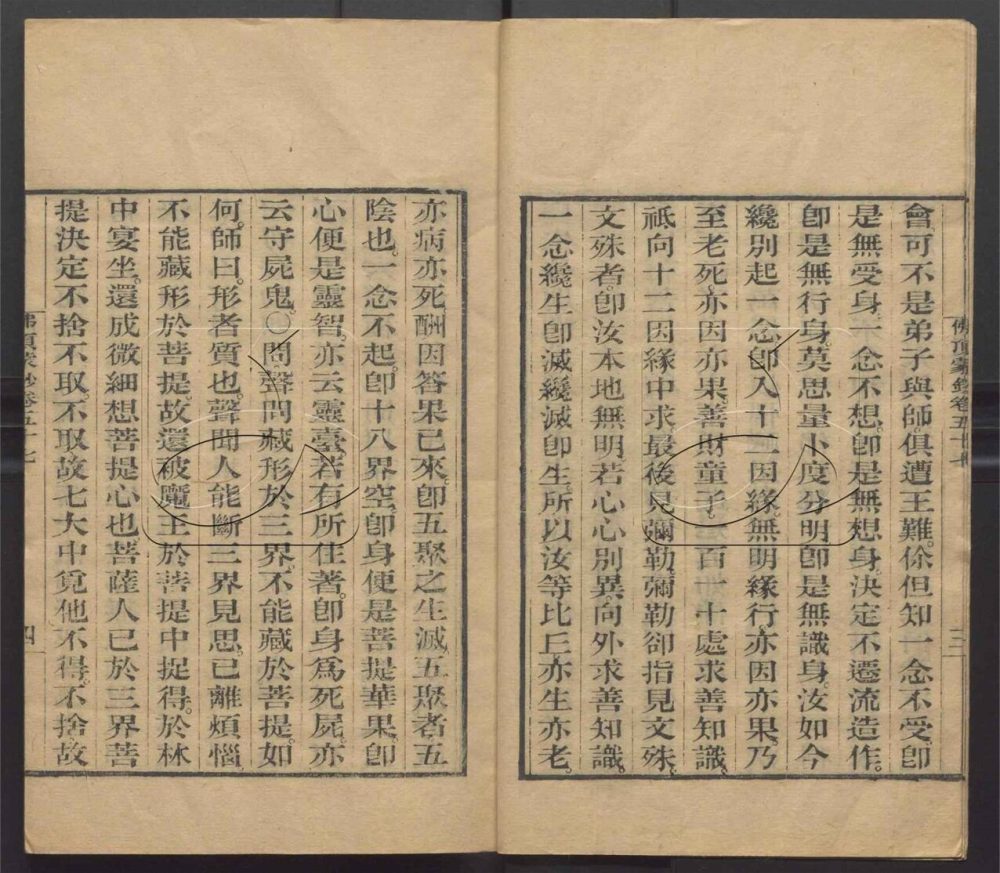 佛頂蒙鈔卷五十七 三
會可不是弟子與師俱遭王難你但知一念不受卽
是無受身一念不想卽是無想身決定不遷流造作
卽是無行身莫思量卜度分明卽是無識身汝如今
纔別起一念卽入十二因緣無明緣行亦因亦果乃
至老死亦因亦果善財童子百一十處求善知識
祇向十二因緣中求最後見彌勒彌勒卻指見文殊
文殊者卽汝本地無明若心心別異向外求善知識
一念纔生卽滅纔滅卽生所以汝等比丘亦生亦老
亦病亦死酬因答果已來卽五聚之生滅五聚者五
陰也一念不起卽十八界空卽身便是菩提華果卽
心便是靈智亦云靈臺若有所住著卽身爲死屍亦
云守屍鬼○問聲聞藏形於三界不能藏於菩提如
何師曰形者質也聲聞人能斷三界見思已離煩惱
不能藏形於菩提故還被魔王於菩提中捉得於林
中宴坐還成微細想菩提心也菩薩人已於三界菩
提決定不捨不取不取故七大中覓他不得不捨故
佛頂蒙鈔卷五十七 四